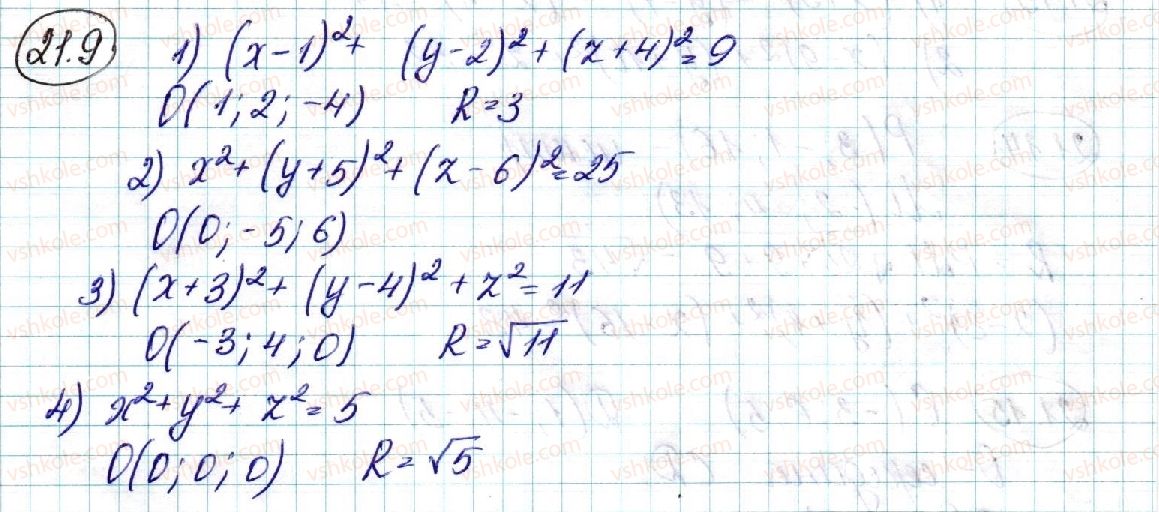 21.9
1) (x-1)²+ (y-2)²+(z+4)²=9
O(1; 2; -4) R=3
2) x²+(y+5)²+(z-6)²=25
O(0; -5; 6)
3) (x+3)²+ (y-4)² + z²=11
O(-3; 4; 0) R=√11
4) x²+y²+ z²=5
O(0; 0; 0) R=√5